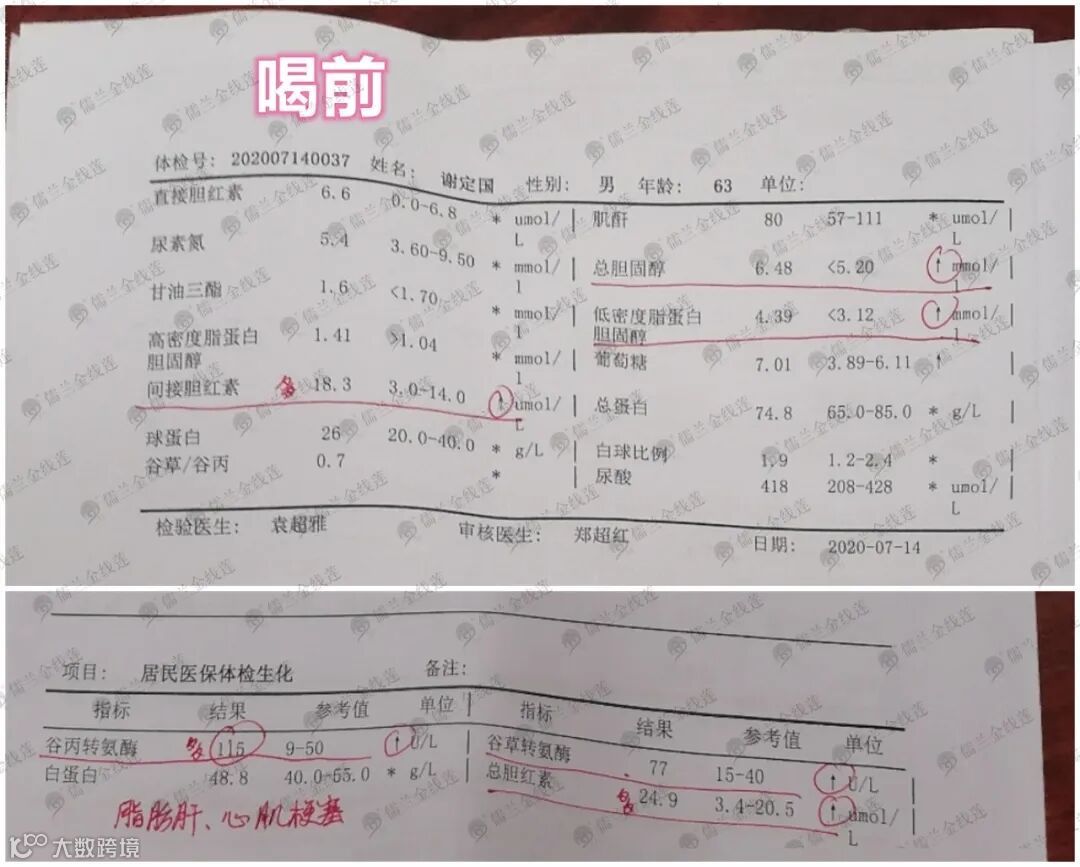 喝前
体检号: 202007140037 姓名: 谢定国 性别: 男 年龄: 63 单位:
直接胆红素 6.6 0.0-6.8 * umol/L
尿素氮 5.4 3.60-9.50 * mmol/l
甘油三酯 1.6 <1.70 * mmol/l
高密度脂蛋白胆固醇 1.41 >1.04 * mmol/l
间接胆红素 18.3 3.0-14.0 ↑ umol/L
球蛋白 26 20.0-40.0 * g/L
谷草/谷丙 0.7 *
肌酐 80 57-111 * umol/L
总胆固醇 6.48 <5.20 ↑ mmol/l
低密度脂蛋白胆固醇 4.39 <3.12 ↑ mmol/l
葡萄糖 7.01 3.89-6.11 ↑ mmol/l
总蛋白 74.8 65.0-85.0 * g/L
白球比例 1.9 1.2-2.4 *
尿酸 418 208-428 * umol/L
检验医生: 袁超雅 审核医生: 郑超红 日期: 2020-07-14
项目: 居民医保体检生化 备注:
指标 结果 参考值 单位 指标 结果 参考值 单位
谷丙转氨酶 115 9-50 ↑ U/L
白蛋白 48.8 40.0-55.0 * g/L
谷草转氨酶 77 15-40 ↑ U/L
总胆红素 24.9 3.4-20.5 ↑ umol/L
脂肪肝、心肌梗塞
大数跨境
儒兰金线莲